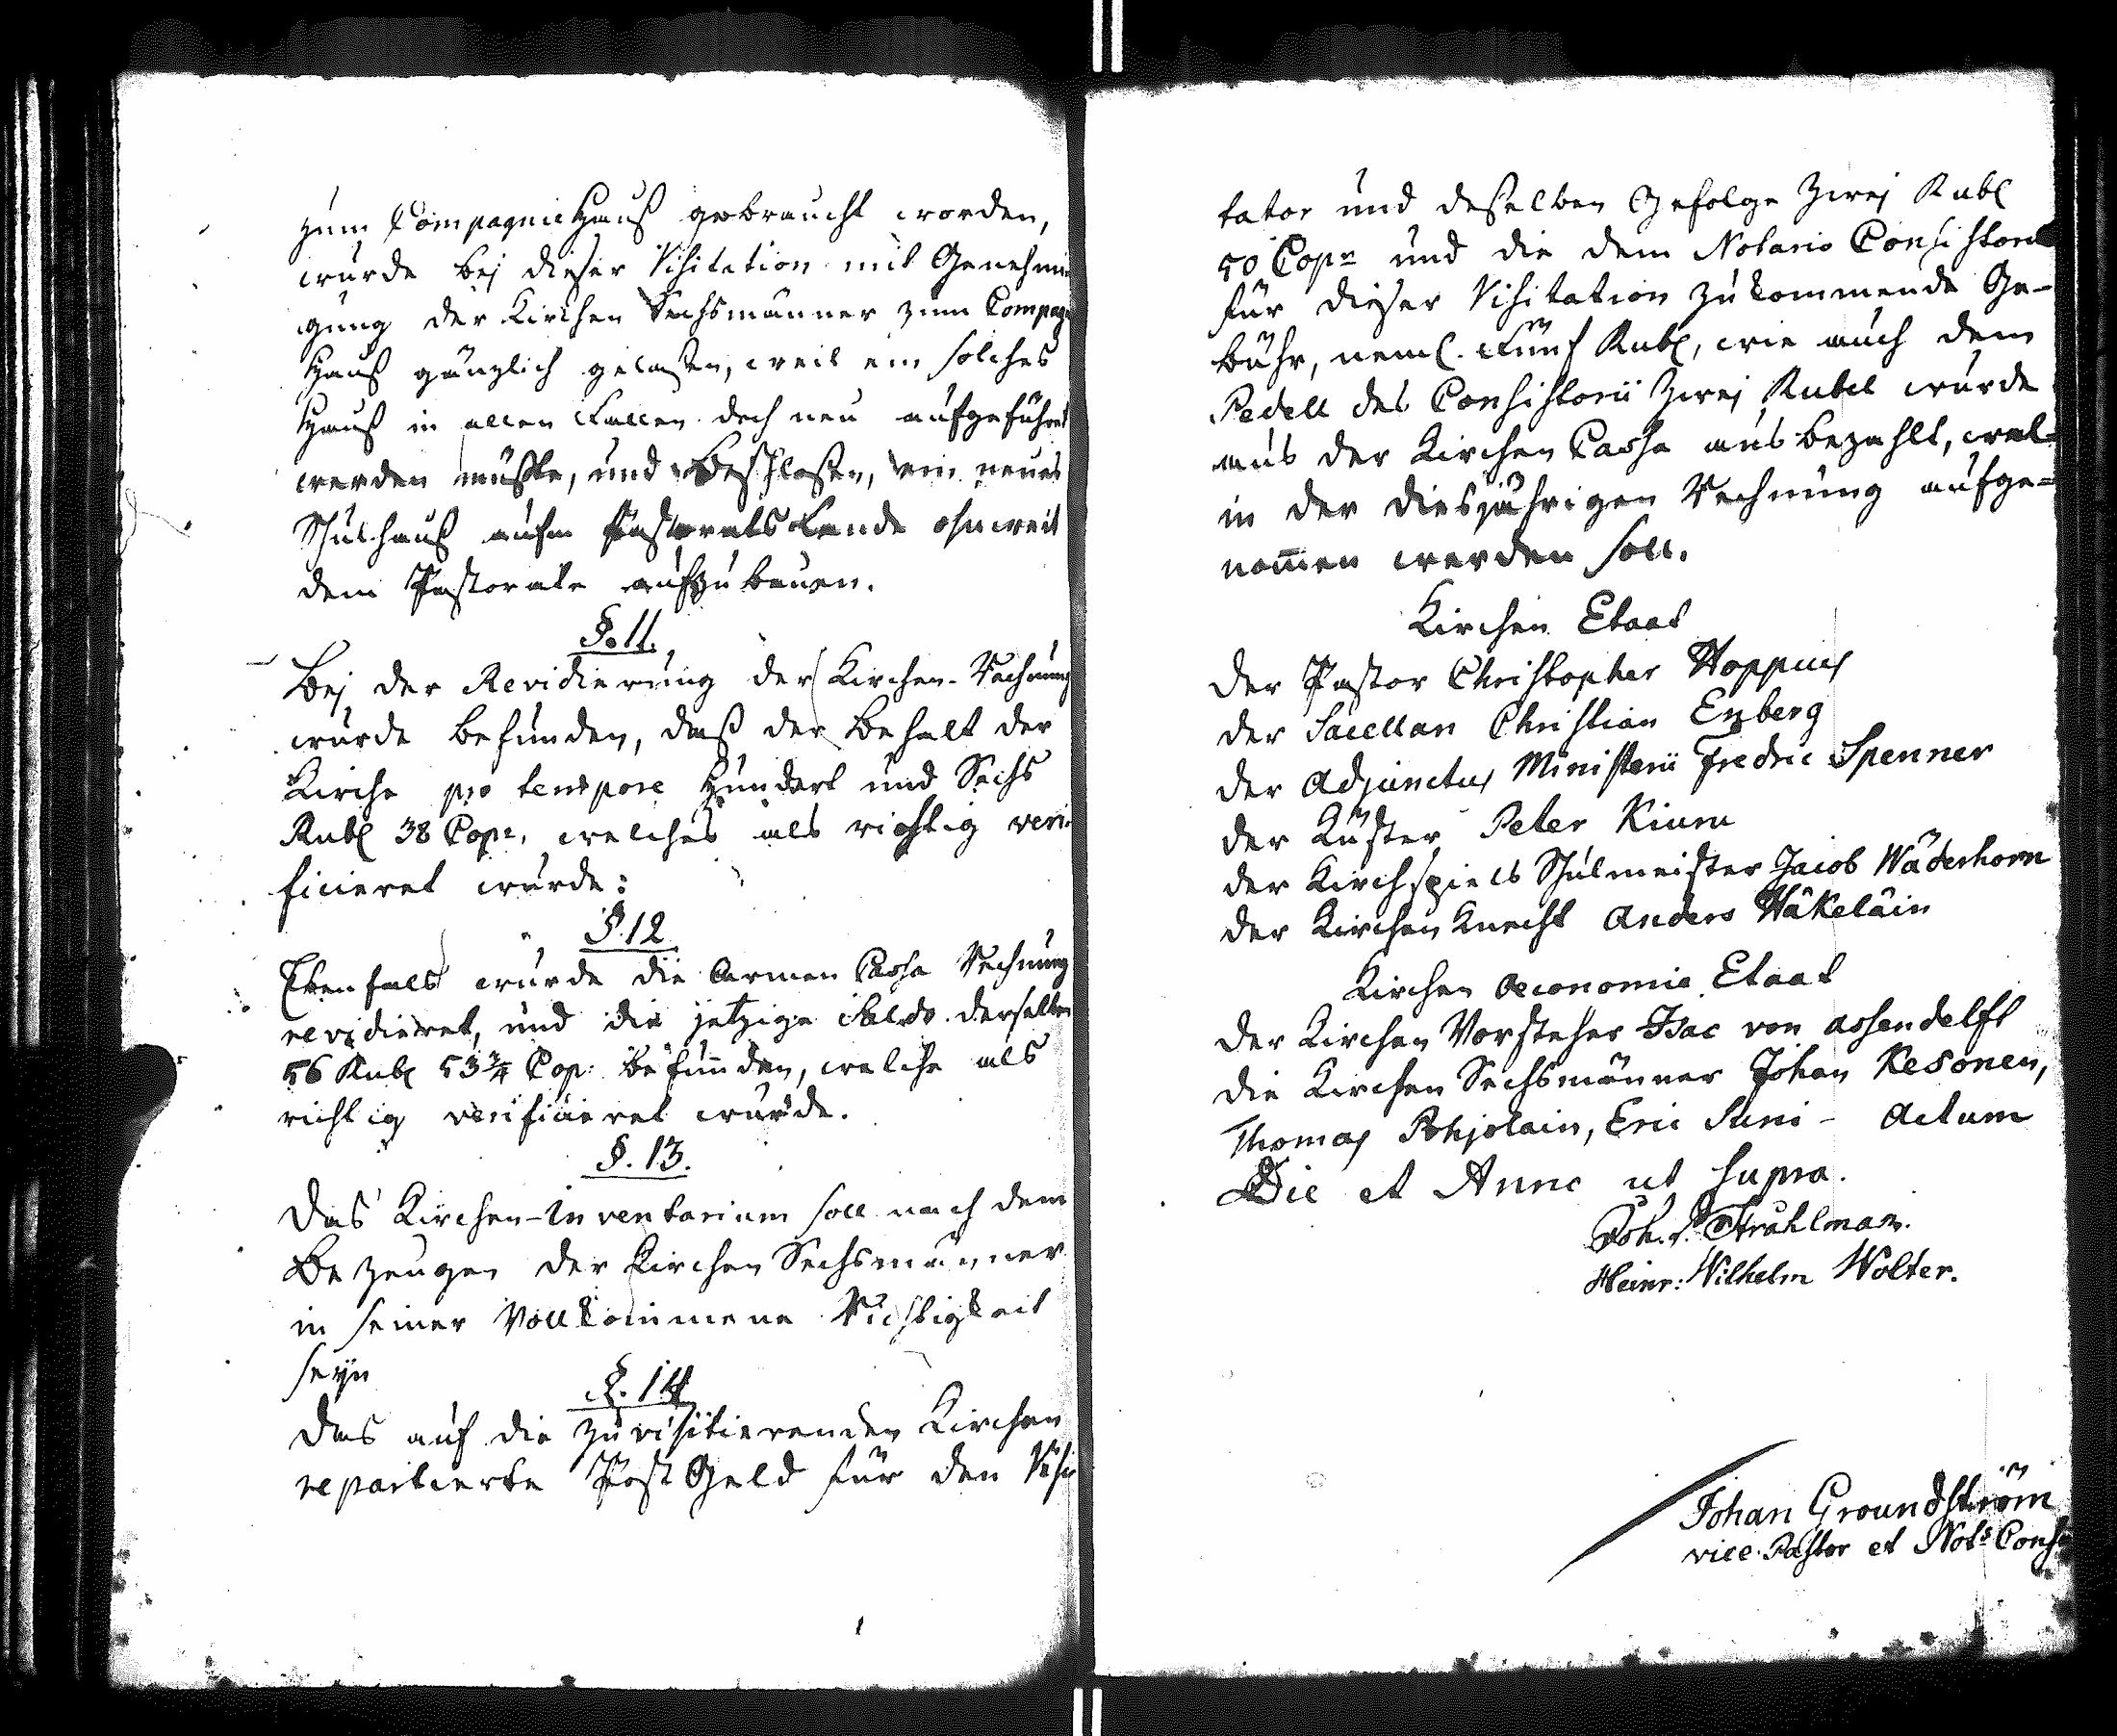 zum Compagnie Hauß gebraucht worden,
wurde bej dieser Visitation mit Genehmi
gung der Kirchen Sechsmänner zum Compag
Hauß gänzlich gelaßen, weil ein solches
Hauß in allen Fallen doch neu aufgeführt
werden müßte, und Beschloßen, ein neues
Schulhauß aufm Pastorats Lande ohnweit
dem Pastorate aufzubauen.
§. 11.
Bej der Revidierung der Kirchen-Rechnung
wurde befunden, daß der Behalt der
Kirche pro tempore Hundert und Sechs
Rubl 38 Cop:, welches als richtig veri-
ficieret wurde:
§. 12
Ebenfals wurde die Armen Cassa Rechnung
revidieret, und die jetzige Saldo derselben
56 Rubl 53 3/4 Cop: befunden, welche als
richtig verificieret wurde.
§. 13.
Das Kirchen-Inventarium soll nach dem
Bezeugen der Kirchen Sechsmänner
in seiner Vollkommene Richtigkeit
seyn
§. 14
Das auf die zu visitierenden Kirchen
repartierte Post Geld für den Visi
tator und deßelben Gefolge Zwej Rubl
50 Cop: und die dem Notario Consistorii
für dieser Visitation zukommende Ge-
bühr, neml. Fünf Rubl, wie auch dem
Pedell des Consistorii Zwej Rubel wurde
aus der Kirchen Cassa ausbezahlt, wel-
in der diesjährigen Rechnung aufge=
nom̅en werden soll.
Kirchen Etaat
Der Pastor Christopher Hoppius
der Sacellan Christian Enberg
der Adjunctus Ministerii Fredric Spenner
der Küster Peter Kiuru
der Kirchspiels Schulmeister Jacob Wäderhorn
der Kirchen Knecht Anders Häkeläin
Kirchen Oeconomie Etaat
Der Kirchen Vorsteher Isac von Assendelft
die Kirchen Sechsmänner Johan Kesonen,
Thomas Pohjolain, Eric Suni - Actum
Die et Anno ut supra.
Joh. Strahlman.
Heinr: Wilhelm Wolter.
Johan Groundström
vice Pastor et Nots Cons